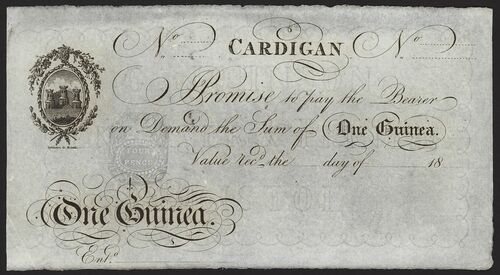 No CARDIGAN No
I Promise to pay the Bearer
on Demand the Sum of One Guinea.
Value recd. the day of 18
FOUR
PENCE
One Guinea.
Entd.